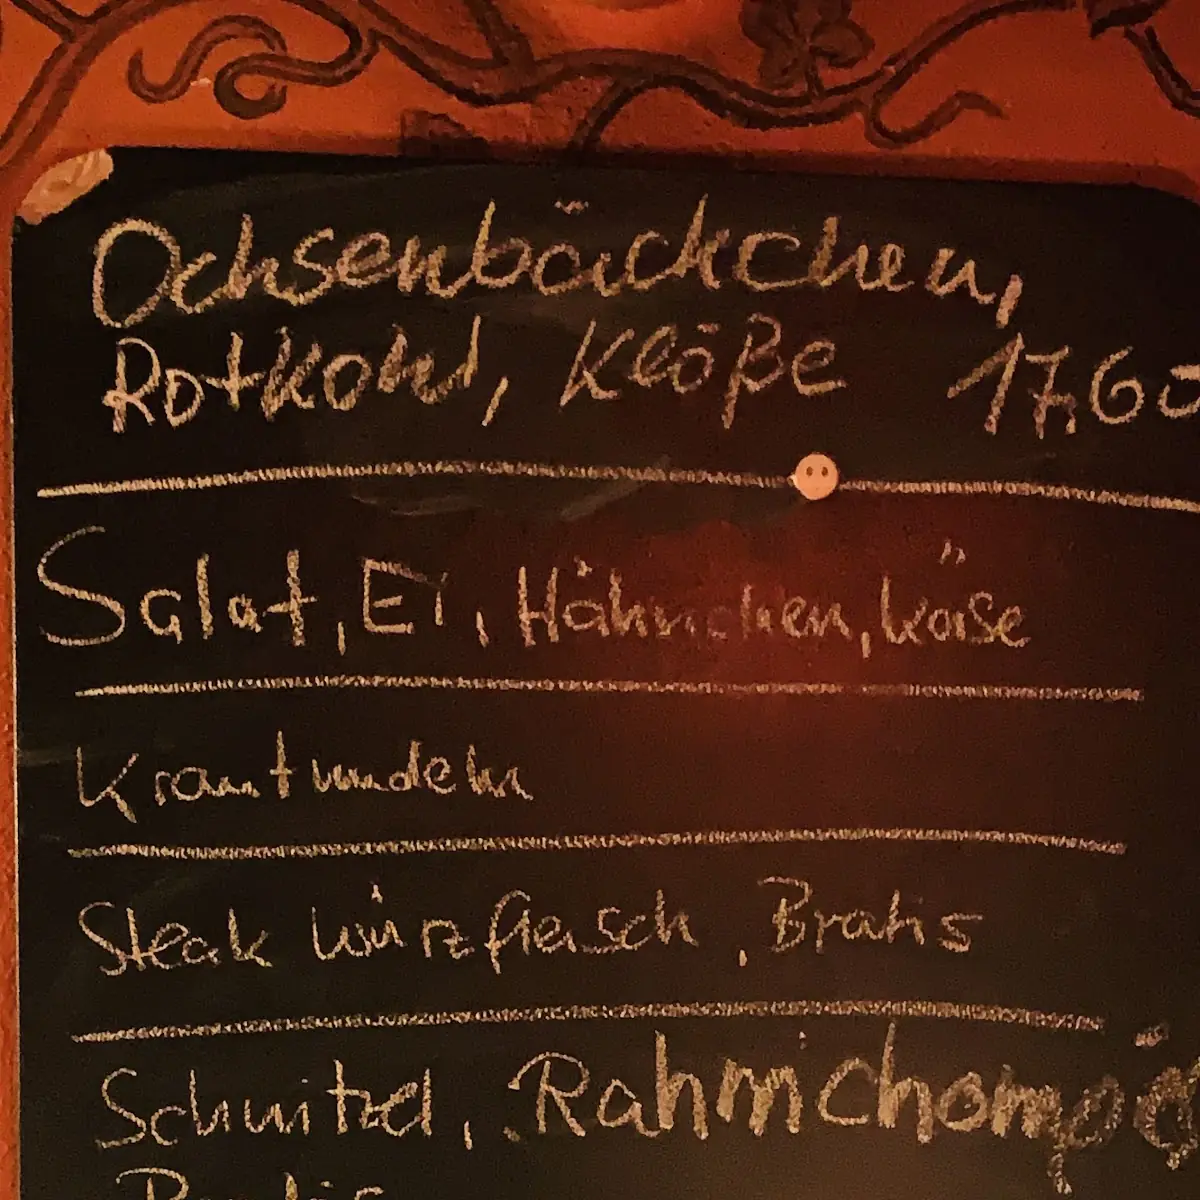 Ochsenbäckchen,
Rotkohl, Klöße 17,60
Salat, Ei, Hähnchen, Käse
Krautnudeln
Steak Würzfleisch, Bratis
Schnitzel, Rahmchamp
Bratis